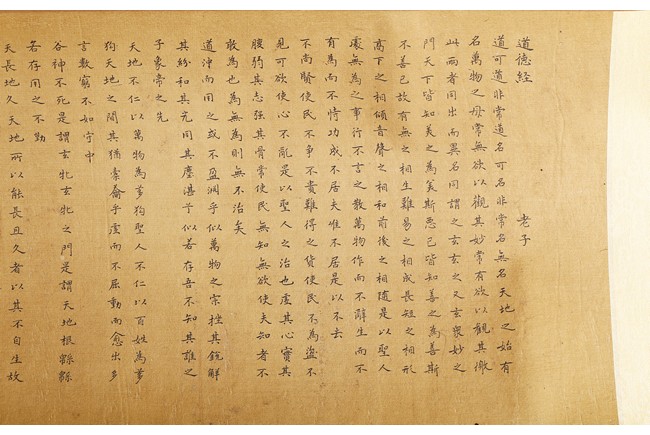 道德經　老子
道可道非常道名可名非常名無名天地之始有
名萬物之母常無欲以觀其妙常有欲以觀其徼
此兩者同出而異名同謂之玄玄之又玄衆妙之
門天下皆知美之為美斯惡已皆知善之為善斯
不善已故有無之相生難易之相成長短之相形
高下之相傾音聲之相和前後之相隨是以聖人
處無為之事行不言之教萬物作而不辭生而不
有為而不恃功成不居夫惟不居是以不去
不尚賢使民不爭不貴難得之貨使民不為盜不
見可欲使心不亂是以聖人之治也虛其心實其
腹弱其志強其骨常使民無知無欲使夫知者不
敢為也為無為則無不治矣
道沖而用之或不盈淵乎似萬物之宗挫其銳解
其紛和其光同其塵湛兮似若存吾不知其誰之
子象帝之先
天地不仁以萬物為芻狗聖人不仁以百姓為芻
狗天地之間其猶橐籥乎虛而不屈動而愈出多
言數窮不如守中
谷神不死是謂玄牝玄牝之門是謂天地根緜緜
若存用之不勤
天長地久天地所以能長且久者以其不自生故